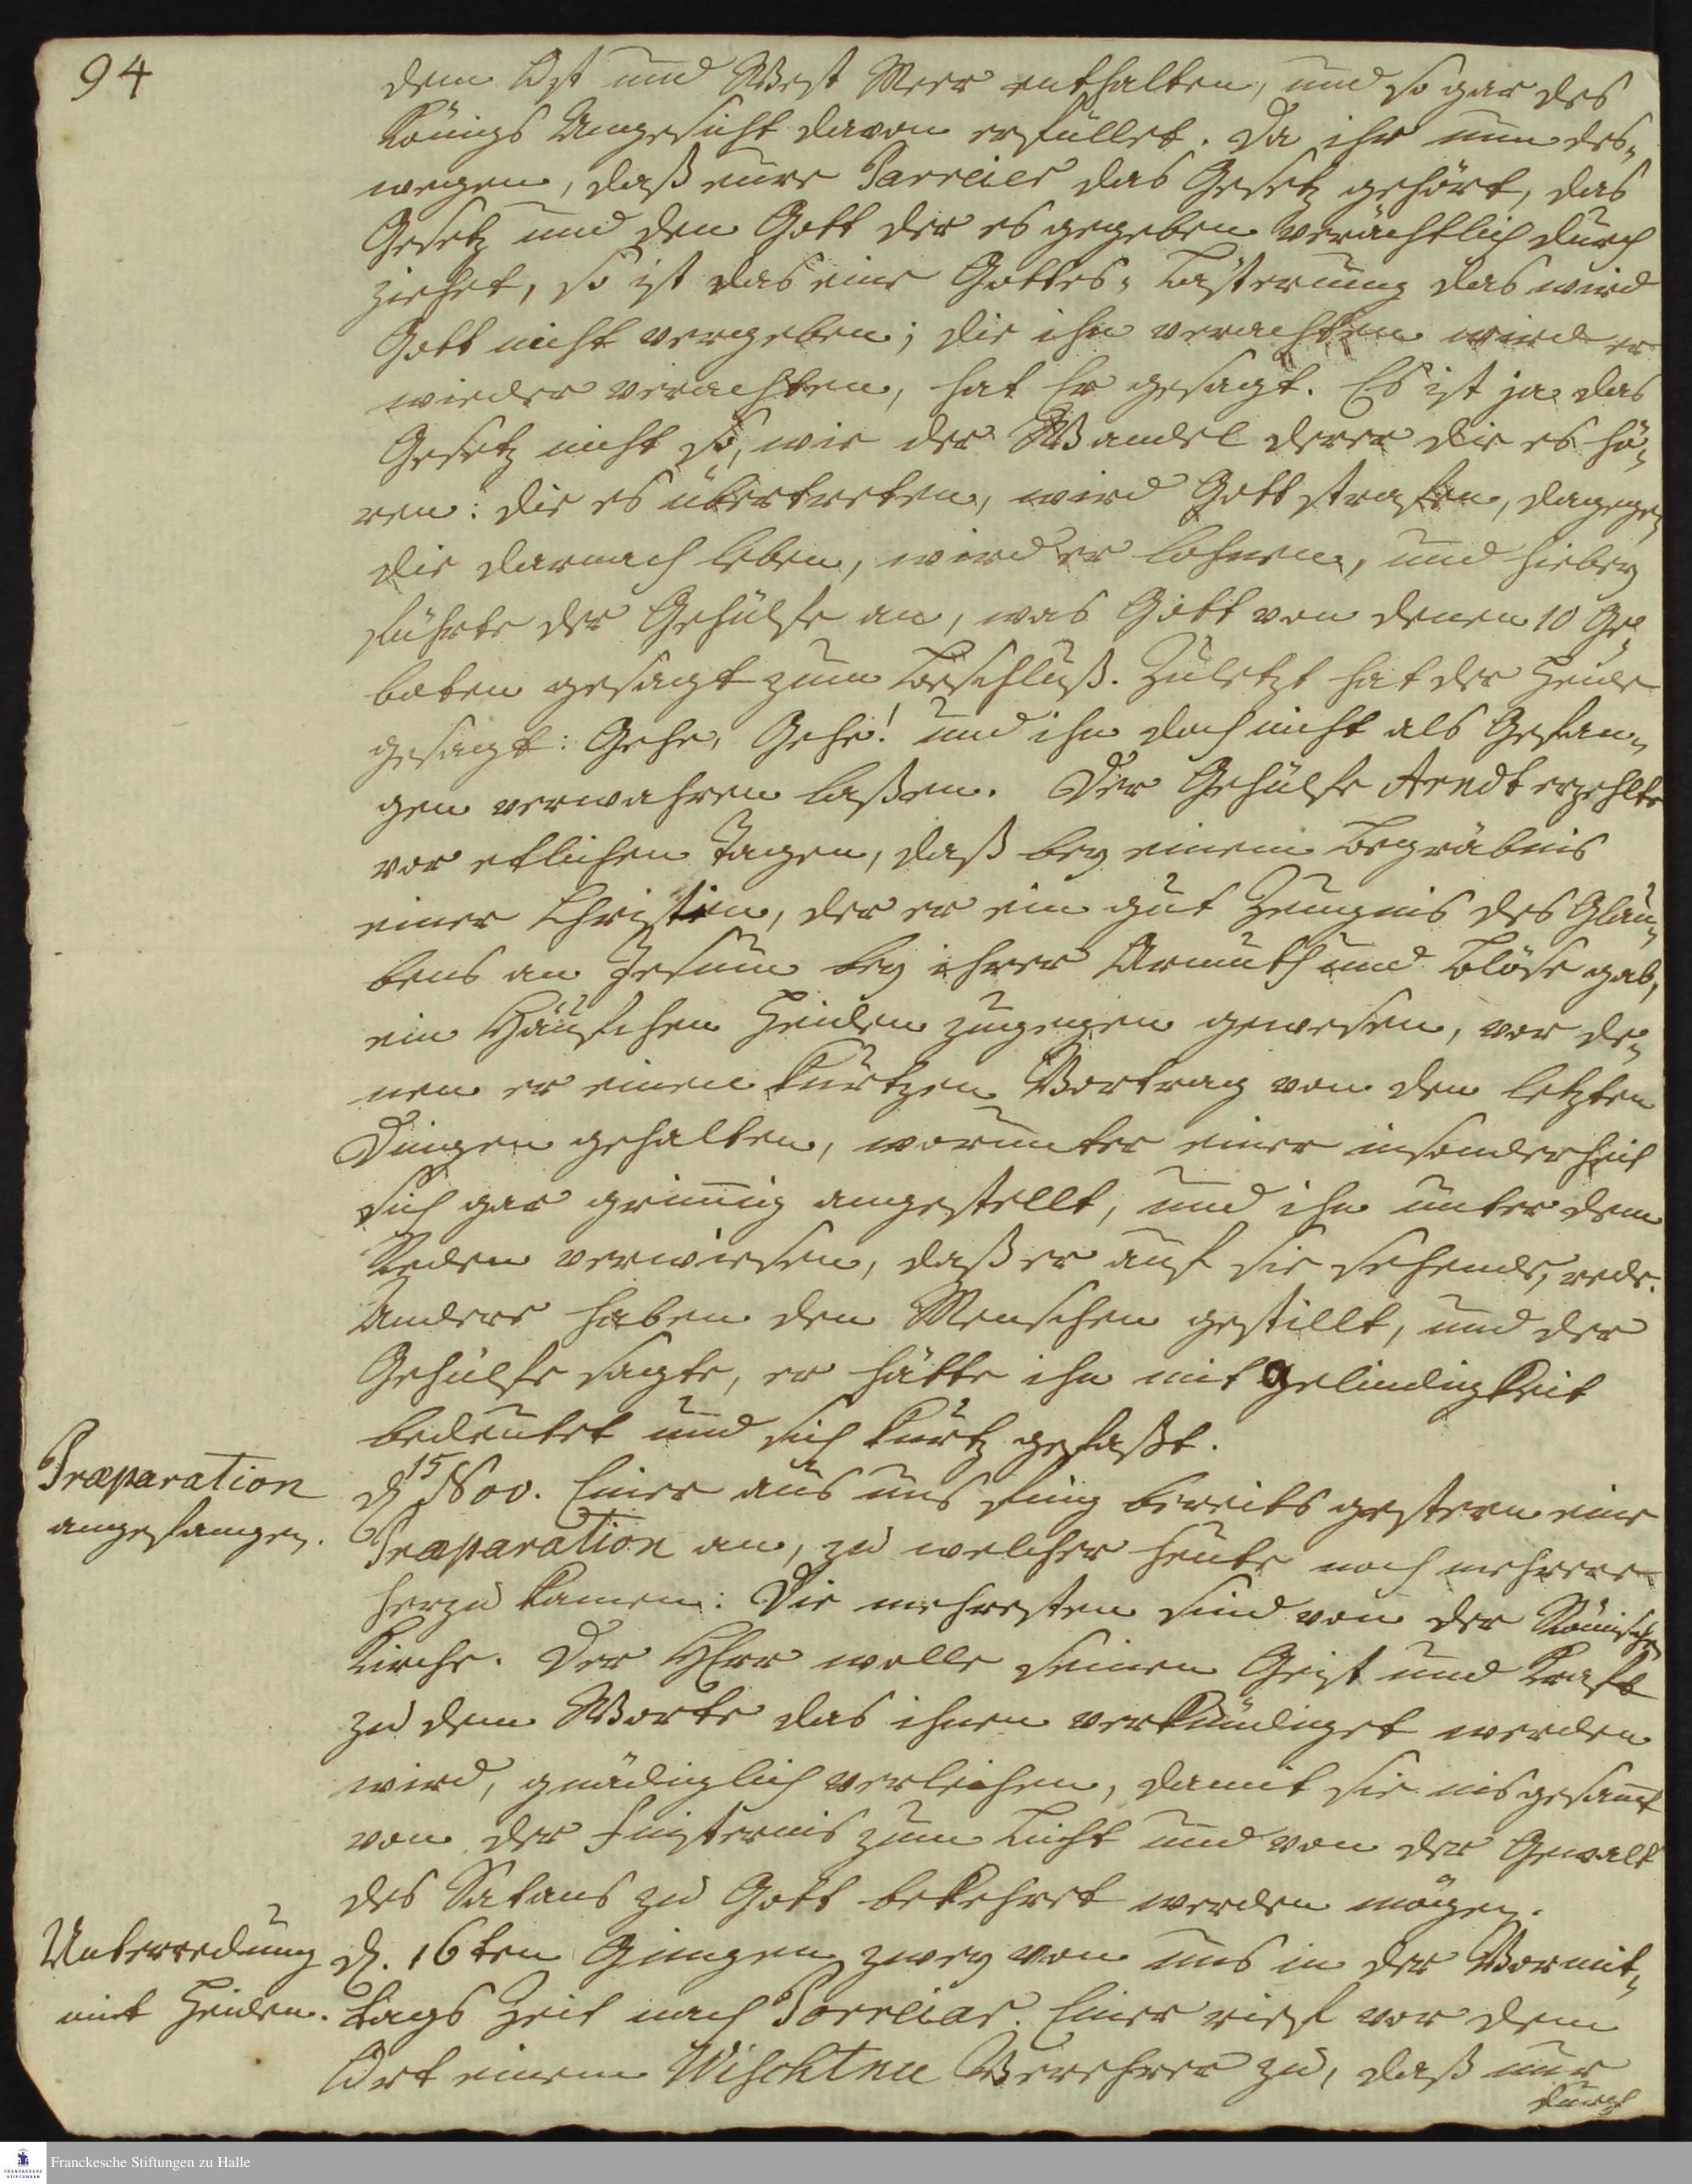 94
dem Ost und West Meer enthalten, und so gar des
Königs Angesicht davon erfüllet. Da ihr nun des-
wegen, daß eure Parreier das Gesetz gehört, das
Gesetz und den Gott der es gegeben verächtlich durch
ziehet, so ist das eine Gottes-Lästerung das wird
Gott nicht vergeben; die ihn verachten wird er
wieder verachten, hat Er gesagt. Es ist ja das
Gesetz nicht so, wie der Wandel derer die es hö-
ren: die es übertreten, wird Gott strafen, dagegen
die darnach leben, wird er lohnen, und hiebey
führte der Gehülfe an, was Gott von denen 10 Ge-
boten gesagt zum Beschluß. Zuletzt hat der Heide
gesagt: Gehe, Gehe! und ihn doch nicht als Gefan-
gen verwahren laßen. Der Gehülfe Arndt erzehlte
vor etlichen Tagen, daß bey einem Begräbnis
einer Christin, der er ein gut Zeugnis des Glau-
bens an Jesum bey ihrer Armuth und Blöse gab,
ein Häufchen Heiden zugegen gewesen, vor de-
nen er einen kurtzen Vortrag von den letzten
Dingen gehalten, worunter einer insonderheit
sich gar grimig angestellt, und ihn unter dem
Reden verwiesen, daß er auf sie sehende, rede.
Andere haben den Menschen gestillt, und der
Gehülfe sagte, er hätte ihn mit gelindigkeit
bedeutet und sich kurtz gefaßt.
Præparation
angefangen.
d 15 Nov. Einer aus uns fing bereits gestern eine
Præparation an, zu welcher heute noch mehrere
herzu kamen: Die mehresten sind von der Römischen
Kirche. Der HErr wolle seinen Geist und Kraft
zu dem Worte das ihnen verkündiget werden
wird, gnädiglich verleihen, damit sie insgesamt
von der Finsternis zum Licht und von der Gewalt
des Satans zu Gott bekehret werden mögen.
Unterredung
mit Heiden.
d. 16ten Gingen zwey von uns in der Vormit-
tags Zeit nach Porreiar. Einer rief vor dem
Ort einem Wischtnu Verehrer zu, daß nur
durch
Franckesche Stiftungen zu Halle